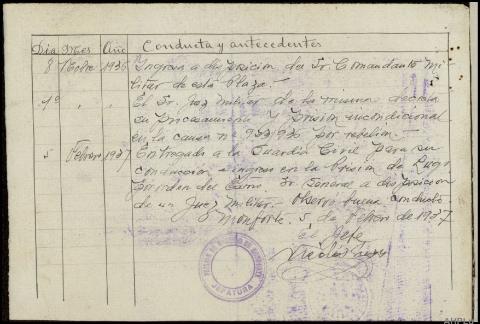 Dia Mes Año Conducta y antecedentes
8 1936 Ingresa a disposicion del Sr. Comandante Mi
litar de esta Plaza.-
" " El Sr. Juez militar de la misma decreta
su Procesamiento y Prision incondicional
en la causa nº por rebelion.-
5 Febrero 1937 Entregado a la Guardia Civil para su
conduccion e ingreso en la Prision de Lugo
por orden del Sr. General a disposicion
de un Juez militar.- Observo buena conducta
Monforte, 5 de Febrero de 1937
El Jefe
JEFATURA